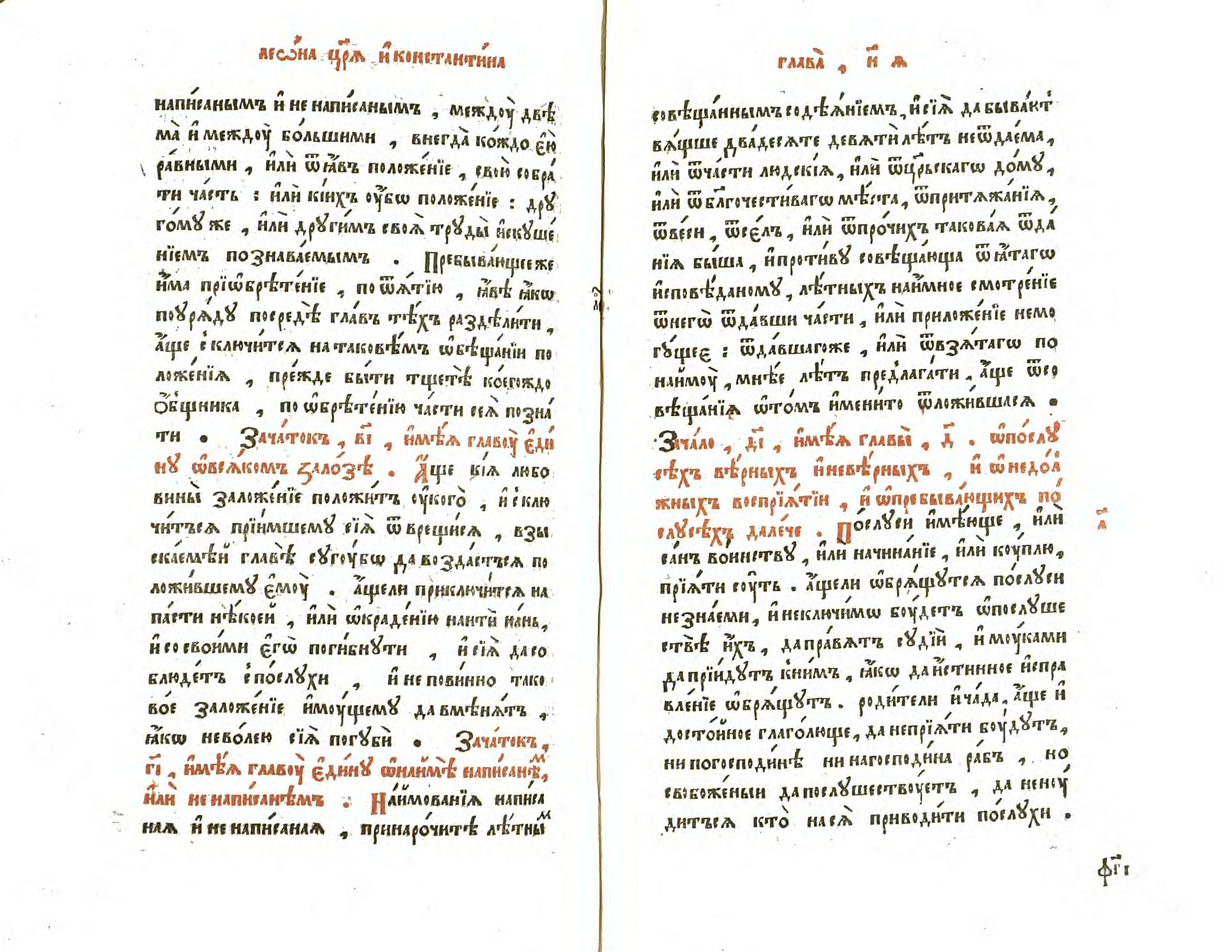 леѡ́на цр҃ѧ̀ и҆ константи́на
напи́санымъ и҆ не напи́санымъ , междоу̀ двѣ́
ма̀ и҆ междоу̀ бо́льшими , внегда̀ ко́ждо є҆ю̀
ра́вными , и҆лѝ ѿ ꙗ҆́въ положе́нїе , свою̀ собра
ти ча́сть : и҆лѝ кі́ихъ оу҆́бѡ положе́нїе : дрꙋ
го́мꙋ же , и҆лѝ дрꙋги́мъ своѧ̀ трꙋды̀ и҆скꙋше́
нїемъ познава́емымъ . Пребыва́ющее же
и҆̀ма прїѡбрѣте́нїе , по ѿѧ́тїю , ꙗ҆́вѣ ꙗ҆́кѡ
поꙋрѧ́дꙋ посредѣ̀ гла́въ тѣ́хъ раздѣли́ти ,
а҆́ще с̾ключи́тсѧ на таковѣ́мъ ѡ҆бѣща́нїи по
ложе́нїѧ , пре́жде бы́ти тщетѣ̀ коегождо
ѻ҆́бщника , по ѡ҆брѣте́нїю ча́сти сеѧ̀ позна́
ти . Зача́токъ , в҃і , и҆мѣ́ѧ главоу̀ є҆ди́
нꙋ ѡ҆ всѧ́комъ зало́зѣ . А҆́ще кі́ѧ любо
вины̀ заложе́нїе положи́тъ оу҆ кого̀ , и҆ с̾клю
чи́тъсѧ прїи́мшемꙋ сїѧ̀ ѿврещи́сѧ , взы
ска́емѣй главѣ̀ сꙋгоу́бѡ да возда́стъсѧ по
ложи́вшемꙋ є҆моу̀ . а҆́щели приключи́тсѧ на
па́сти нѣ́коей , и҆лѝ ѡ҆краде́нїю наитѝ нань ,
и҆ со свои́ми є҆гѡ̀ поги́бнꙋти , и҆ сїѧ̀ да со
блюде́тъ с̾по́слꙋхи , и҆ непови́нно тако
во́е заложе́нїе и҆моу́щемꙋ да вмѣнѧ́тъ ,
ꙗ҆́кѡ нево́лею сїѧ̀ погꙋбѝ . Зача́токъ ,
г҃і , и҆мѣ́ѧ главоу̀ є҆ди́нꙋ ѡ҆ наи́мѣ написанѣ́м ,
и҆лѝ не написанѣмъ . Наи҆мова́нїѧ написа
наѧ и҆ не написанаѧ , принаро́читѣ лѣ́тны́м
глава̀ , и҃ ѧ
совѣща́ннымъ содѣѧ́нїемъ , и҆ сїѧ̀ да быва́ют̾
вѧ́щше два́десѧте девѧтѝ лѣ́тъ не ѿдае́ма ,
и҆лѝ ѿ ча́сти людскі́ѧ , и҆лѝ ѿ цр҃ьскагѡ до́мꙋ ,
и҆лѝ ѿ бл҃гочести́вагѡ мѣ́ста , ѿ притѧжа́нїѧ ,
ѿ ве́си , ѿ се́лъ , и҆лѝ ѿ про́чихъ такова́ѧ ѿда
нїѧ бы́ша , и҆ проти́вꙋ совѣща́юща ѿ ꙗ҆́тагѡ
и҆сповѣ́даномꙋ , лѣ́тныхъ наи́мное смотре́нїе
ѿ негѡ̀ ѿда́вши ча́сти , и҆лѝ приложе́нїе не мо
гꙋ́щее : ѿда́вшагоже , и҆лѝ ѿ взѧ́тагѡ по
наи́моу̀ , мнѣ́е лѣ́тъ предлага́ти . а҆́ще ѿ со
вѣща́нїѧ ѡ҆ то́мъ и҆мени́то ѿложи́вшасѧ .
Зача́ло , д҃і , и҆мѣ́ѧ главы̀ , д҃ . ѡ҆ послꙋ́
сѣхъ вѣ́рныхъ и҆ невѣ́рныхъ , и҆ ѡ҆ недол̾
жныхъ воспрїѧ́тїи , и҆ ѡ҆ пребыва́ющихъ по̀
слꙋсѣхъ дале́че . По́слꙋси и҆мѣ́юще , и҆лѝ
са́нъ во́инствꙋ , и҆лѝ начина́нїе , и҆лѝ коу́плю ,
прїѧ́ти соу́ть . а҆́щели ѡ҆брѧ́щꙋтсѧ по́слꙋси
незна́еми , и҆ неключи́мѡ боу́детъ ѡ҆ послꙋше
ствѣ и҆́хъ , да пра́вѧтъ сꙋдїѝ , и҆ моу́ками
да прїи́дꙋтъ к̾ни́мъ , ꙗ҆́кѡ да и҆́стинное и҆спра
вле́нїе ѡ҆брѧ́щꙋтъ . роди́тели и҆ ча́да , а҆́ще и҆
досто́йное глаго́люще , да непрїѧ́ти боу́дꙋтъ ,
ни погосподи́нѣ ни нагосподи́на ра́бъ , но
свобоже́ныи да послꙋ́шествоу́етъ , да не ноу́
дитьсѧ кто̀ на сѧ̀ приводи́ти по́слꙋхи .
а҃
фг҃і